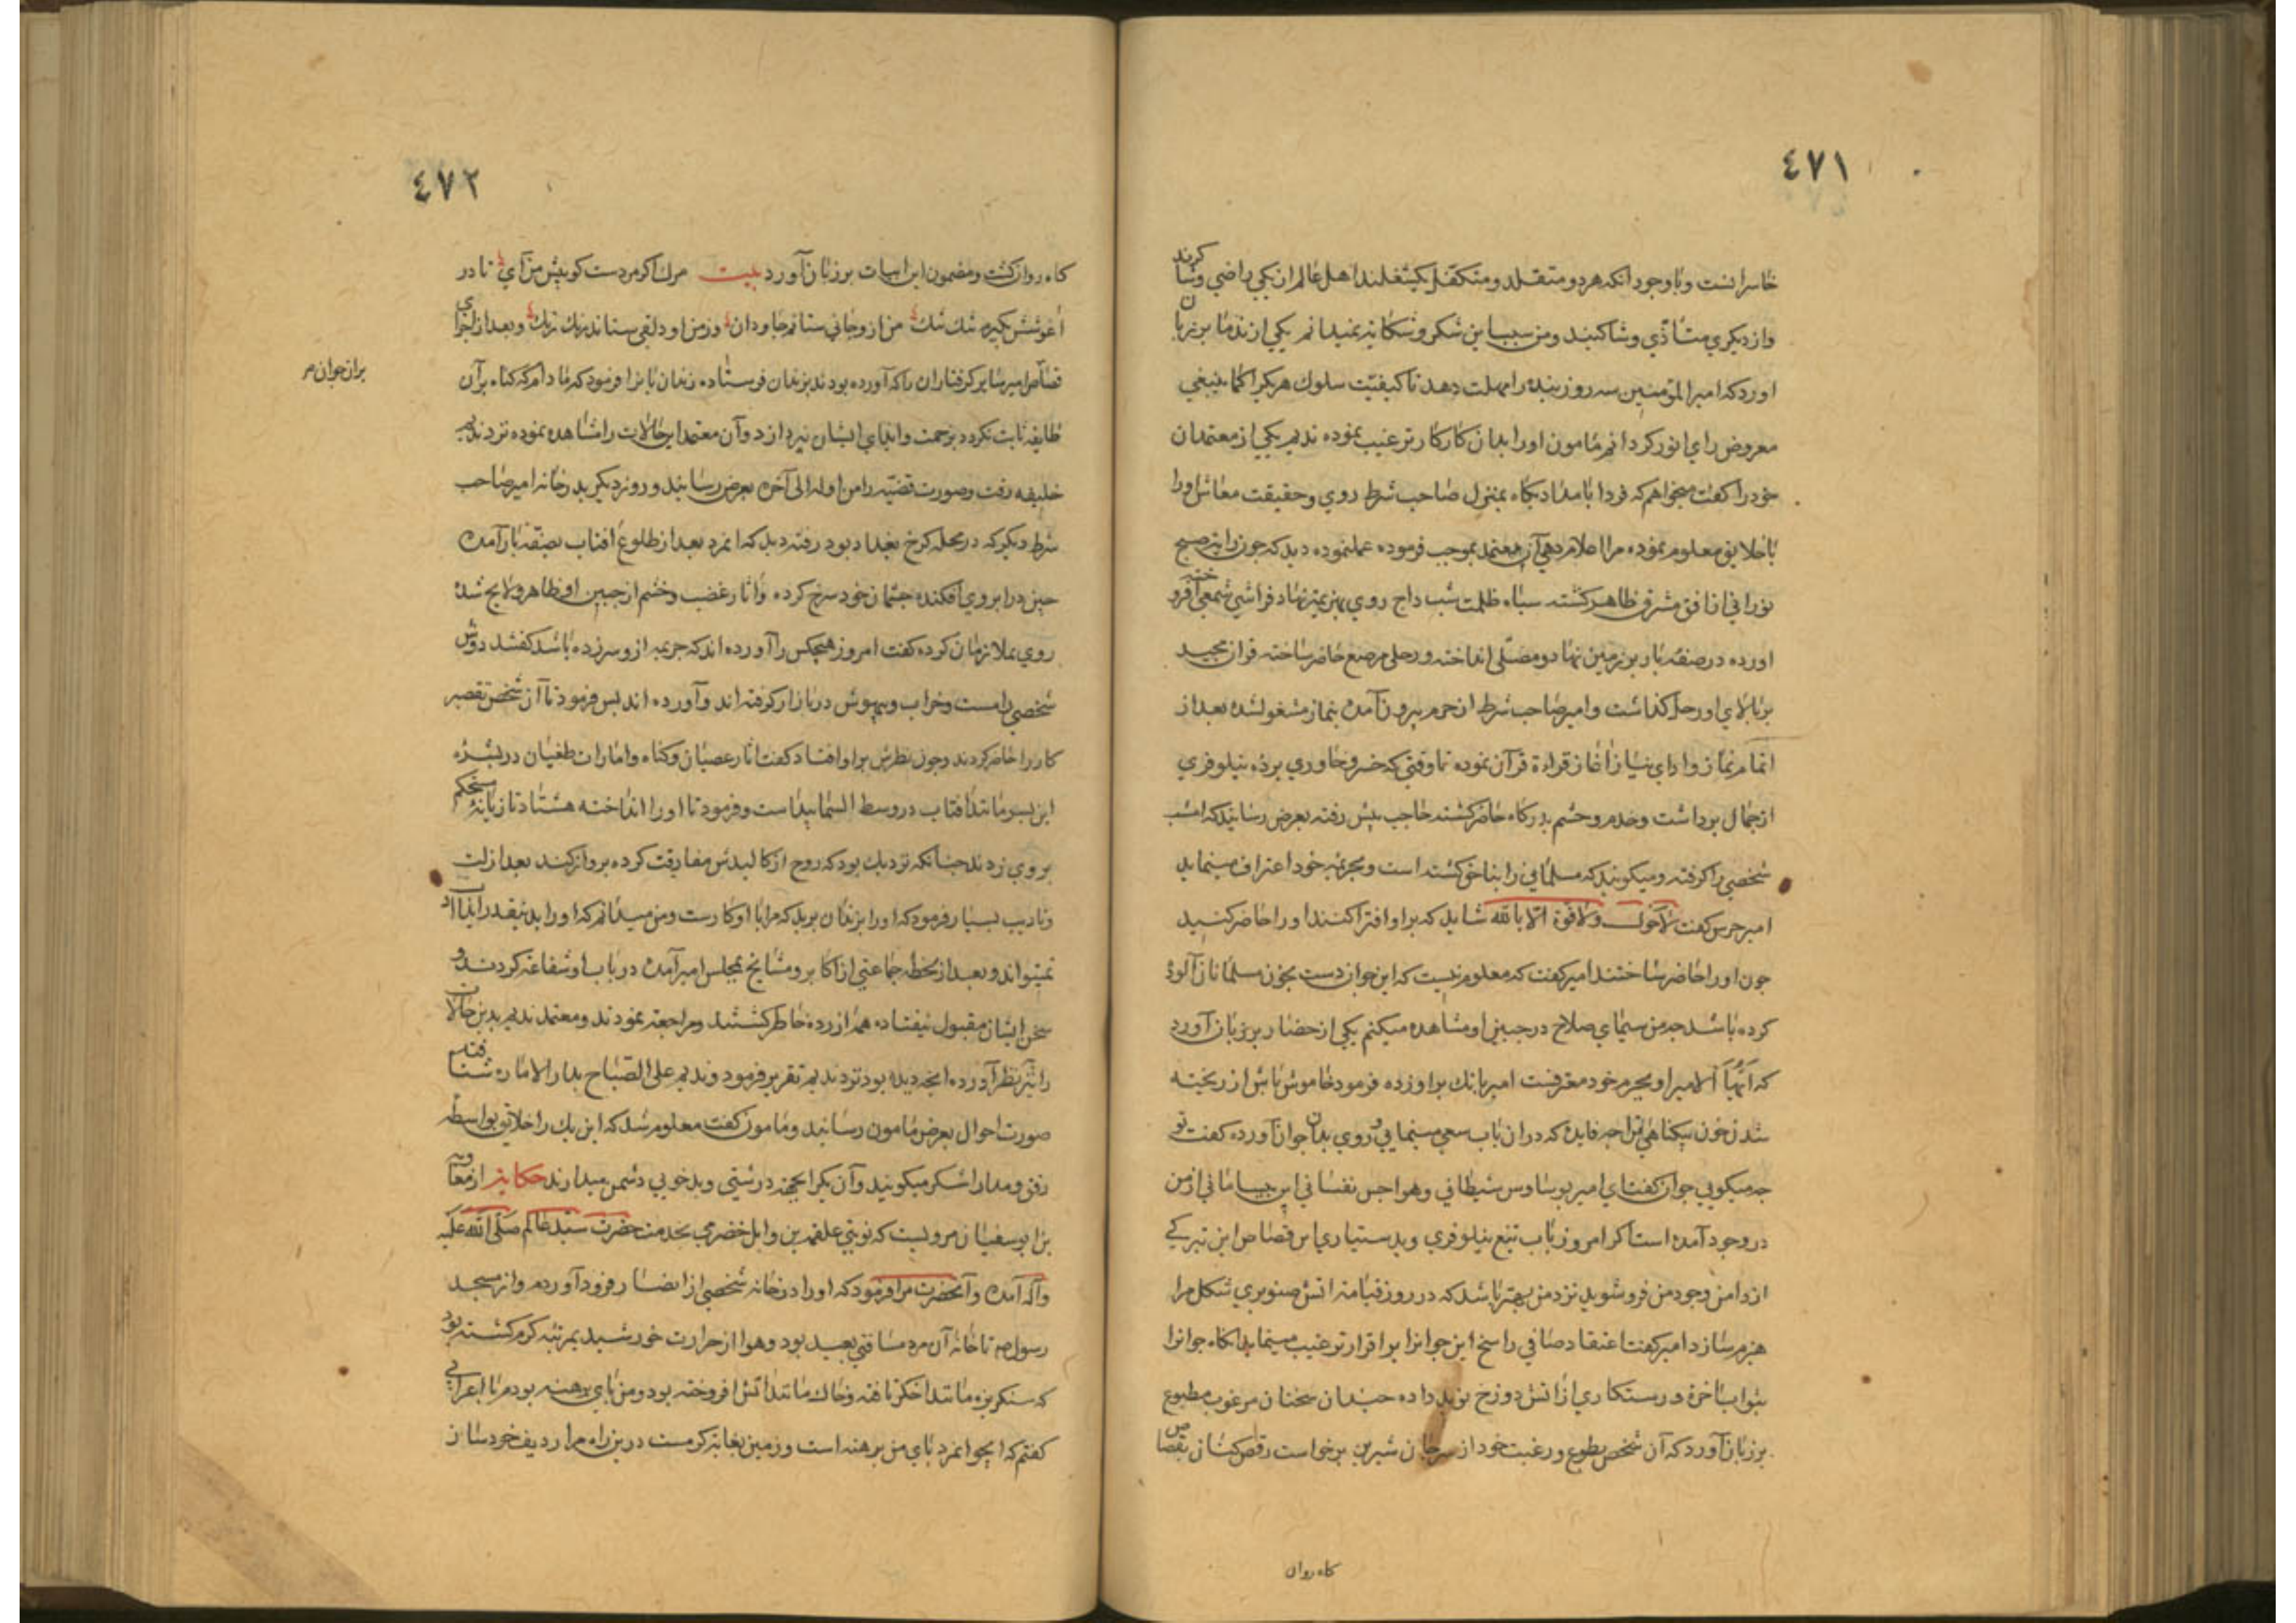 ٤٧١
خاسرانست و باوجود انکه هر دو متقلد و متکفل یکشغلند اهل عالم از یکی راضی و شاکرند
و از دیکری متأذی و شاکیند و من سبب این شکر و شکایه نمیدانم یکی از ندما بر زبان
اورد که امیر المؤمنین سه روز بنده را مهلت دهد تا کیفیّت سلوک هر یکرا کما ینبغی
معروض رای انور کردانم مامون اورا بدان کار ترغیب نموده ندیم یکی از معتمدان
خود را کفت میخواهم که فردا بامداد پکاه بمنزل صاحب شرط روی و حقیقت معاش اورا
با خلایق معلوم نموده مرا اعلام دهی آن معتمد بموجب فرموده عملنموده دید که چون رایه صبح
نورانی از افق مشرق ظاهر کشته سپاه ظلمت شب داج روی بهزیمت نهاد فراشی شمعی افروخته
اورده در صفه بار بر زمین نهاد و مصلّی انداخته و رحلی مرصع حاضر ساخته قران مجید
بر بالای او رحل کذاشت و امیر صاحب شرط از حرم بیرون آمده بنماز مشغولشده بعد از
اتمام نماز و ادای نیاز اغاز قراءة قرآن نموده تا وقتی که خسرو خاوری پرده نیلوفری
از جمال برداشت و خدم و حشم بدرکاه حاضر کشته حاجب پیش رفته بعرض رسانید که امشب
شخصی را کرفته و میکویند که مسلمانی را بناحق کشته است و بجریمه خود اعتراف مینماید
امیر حرس کفت لاحول ولاقوة الا بالله شاید که براو افترا کنند اورا حاضر کنید
چون اورا حاضر ساختند امیر کفت که معلوم نیست که این جوان دست بخون مسلمانان آلودهٔ
کرده باشد چه من سیمای صلاح در جبین او مشاهده میکنم یکی از حضار بر زبان آورد
که ایّها الامیر او بجرم خود معترفست امیر بانک براو زده فرمود خاموش باش از ریخته
شدن خون بیکناهی ترا چه فایده که دران باب سعی مینمایی و روی بدان جوان آورده کفت تو
چه میکویی جوان کفت ای امیر بوساوس شیطانی و هواجس نفسانی این از من
در وجود آمده است اکر امروز باب تیغ نیلوفری و بدستیاری قصاص این تیرکی
از دامن وجود من فرو شوید نزد من بهتر باشد که در روز قیامه اتش صنوبری شکل مرا
هیزم سازد امیر کفت اعتقاد صافی راسخ این جوانرا بر اقرار ترغیب مینماید انکاه جوانرا
بثواب اخرة و رستکاری از اتش دوزخ نوید داده چندان سخنان مرغوب مطبوع
بر زبان آورد که آن شخص بطوع و رغبت خود از سر جان شیرین برخواست رقص کنان بقصاص
کاه روان
٤٧٢
کاه روان کشت و مضمون این ابیات بر زبان آورد بیت مرک اکر مردست کو پیش من آی تا در
اغوشش کیرم تنک تنک من ازو جانی ستانم جاودان و ز من او دلقی ستاند رنک رنک و بعد از اجرای
قصاص امیر سایر کرفتاران را که آورده بودند بزندان فرستاده زندان بانرا فرمود که مادام که کناه برآن
بران جوان مر
طایفه ثابت نکردد بزحمت و ایذای ایشان نپردازد و آن معتمد این حالات را مشاهده نموده نزد ندیم
خلیفه رفت و صورت قضیّه را من اوله الی آخره بعرض رسانید و روز دیکر بدر خانه امیر صاحب
شرط دیکر که در محله کرخ بغداد بود رفته دید که انمرد بعد از طلوع افتاب بصفه بار آمده
چین در ابروی افکنده چشمان خود سرخ کرده و اثار غضب و خشم از جبین او ظاهر و لایح شدهٔ
روی بملازمان کرده کفت امروز هیچکس را آورده اند که جریمه ازو سر زده باشد کفتند دوش
شخصی را مست و خراب و بیهوش در بازار کرفته اند و آورده اند پس فرمود تا آن شخص تقصیر
کار را حاضر کردند و چون نظرش براو افتاد کفت اثار عصیان و کناه و امارات طغیان در بشرهٔ
این پسر مانند افتاب در وسط السّما پیداست و فرمود تا اورا انداخته هشتاد تازیانهٔ مستحکم
بروی زدند چنانکه نزدیک بود که روح از کالبدش مفارقت کرده پرواز کند بعد از لت
و تادیب بسیار فرمود که اورا بزندان برید که مرا با او کارست و من میدانم که اورا بدینقدر ایذا
نمیتواند و بعد از لحظه جماعتی از اکابر و مشایخ بمجلس امیر آمده در باب او شفاعه کردند و
سخن ایشان مقبول نیفتاده همه ازرده خاطر کشتند و مراجعه نمودند و معتمد ندیم بدین حالات
را نیز بنظر آورده انچه دیده بود نزد ندیم تقریر فرمود و ندیم علی الصّباح بدار الاماره شتافته
صورت احوال بعرض مامون رسانید و مامون کفت معلوم شد که این یک را خلایق بواسطه
رفق و مدارا شکر میکویند و آن یکرا بجهة درشتی و بدخویی دشمن میدارند حکایة از معاویه
بن ابوسفیان مرویست که نوبتی علقمه بن وایل خضرمی بخدمت حضرت سیّد عالم صلّی الله علیه
وآله آمده و آنحضرت مرا فرمود که اورا در خانه شخصی از انصار فرود آوردم و از مسجد
رسول ص تا خانهٔ آن مرد مسافتی بعید بود و هوا از حرارت خورشید بمرتبه کرم کشته بود
که سنکریزه مانند اخکر تافته و خاک مانند اتش افروخته بود و من پای برهنه بودم با اعرابی
کفتم که ایجوانمرد پای من برهنه است و زمین بغایة کرمست درین راه مرا ردیف خود ساز